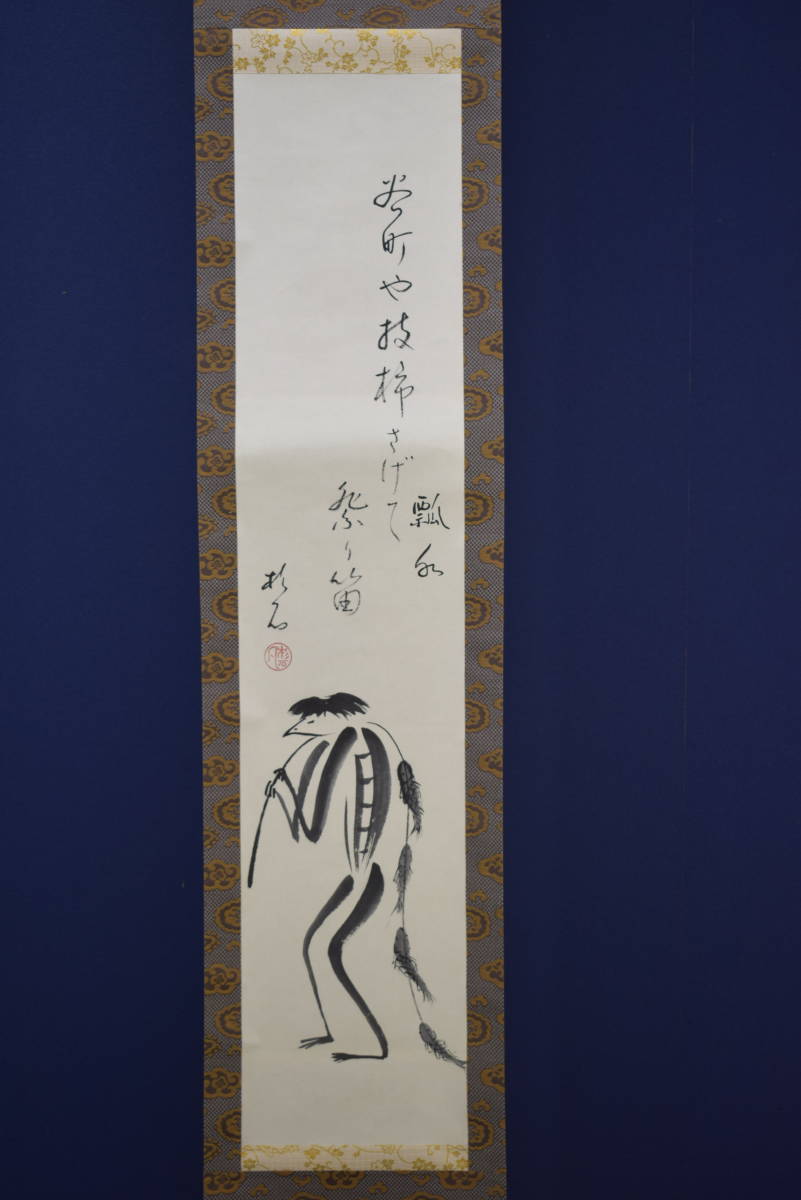 谷町や枝柿さげて
祭り笛
瓢水